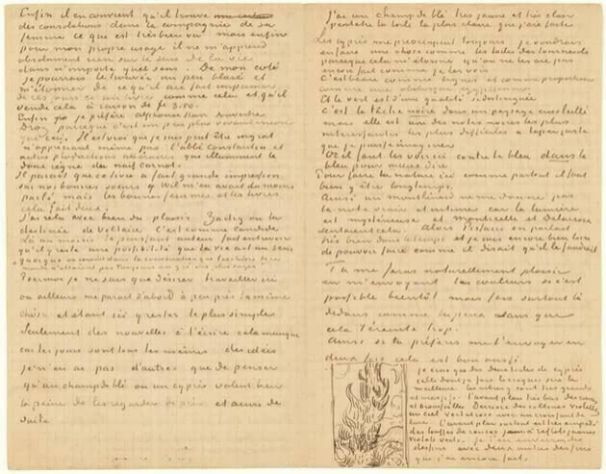 Enfin il en convient qu'il trouve
des consolations dans la compagnie de sa
femme ce qui est très bien vu mais enfin
pour mon propre usage il ne m'apprend
absolument rien sur le sens de la vie
dans n'importe quel sens. De mon coté
je pourrais le trouver un peu blasé et
m'étonner de ce qu'il ait fait imprimer
ces jours ci un livre comme celui et qu'il
vende cela à raison de fr 3.50.
Enfin je préfère alphonse Karr Souvestre
Droz parceque c'est un peu plus vivant encore
que ceci. Il est vrai que je suis peut être ingrat
n'appréciant même pas l'abbé constantin et
autres productions littéraires qui illuminent le
doux règne du naïf Carnot.
Il parait que ce livre a fait grande impression
sur nos bonnes soeurs. Wil m'en avait du moins
parlé mais les bonnes femmes et les livres
cela fait deux.
J'ai relu avec bien du plaisir Zadig ou la
destinée de Voltaire. C'est comme candide.
Là au moins le puissant auteur fait entrevoir
qu'il y reste une possibilité que la vie ait un sens
quoiqu'on convint dans la conversation que les choses de ce
monde n'allaient pas toujours au gré des plus sages.
je ne sais que désirer travailler ici
ou ailleurs me parait d'abord à peu près la même
chose et étant ici y rester le plus simple.
Seulement des nouvelles à t'écrire cela manque
car les jours sont tous les mêmes des idées
je n'en ai pas d'autres que de penser
qu'un champ de blé ou un cyprès valent bien
la peine de les regarder de près et ainsi de
suite
J'ai un champ de blé très jaune et très clair
peutetre la toile la plus claire que j'aie faite
Les cyprès me préoccupent toujours je voudrais
en faire une chose comme les toiles des tournesols
parceque cela m'étonne qu'on ne les ait pas
encore fait comme je les vois.
C'est beau comme lignes et comme proportions
comme une obélisque egyptienne.
Et le vert est d'une qualité si distinguée
c'est la tâche noire dans un paysage ensoleillé
mais elle est une des notes noires les plus
interessantes les plus difficiles à taper juste
que je puisse imaginer
Or il faut les voir ici contre le bleu dans le
bleu pour mieux dire
Pour faire la nature ici comme partout il faut
bien y être longtemps.
Ainsi un monthénard ne me donne pas
la note vraie et intime car la lumière
est mystérieuse et monticelli et Delacroix
sentaient cela. Alors Pissaro en parlait
très bien dans le temps et je suis encore bien loin
de pouvoir faire comme il disait qu'il le faudrait
Tu me feras naturellement plaisir
en m'envoyant les couleurs si c'est
possible bientôt mais fais surtout là
dedans comme tu peux sans que
cela t'éreinte trop.
Ainsi si tu préfères m'envoyer en
deux fois cela est bon aussi
je crois que des deux toiles de cyprès
celle dont je fais le croquis sera la
meilleure les arbres y sont très grands
et massifs. l'avant plan très bas des ronces
et broussailles Derrière des collines violettes
un ciel vert et rose avec un croissant de
lune. L'avant plan surtout est très empâté
des touffes de ronces jaunes à reflets jaunes
violets verts. je t'en enverrai des
dessins avec deux autres dessins
que j'ai encore fait.